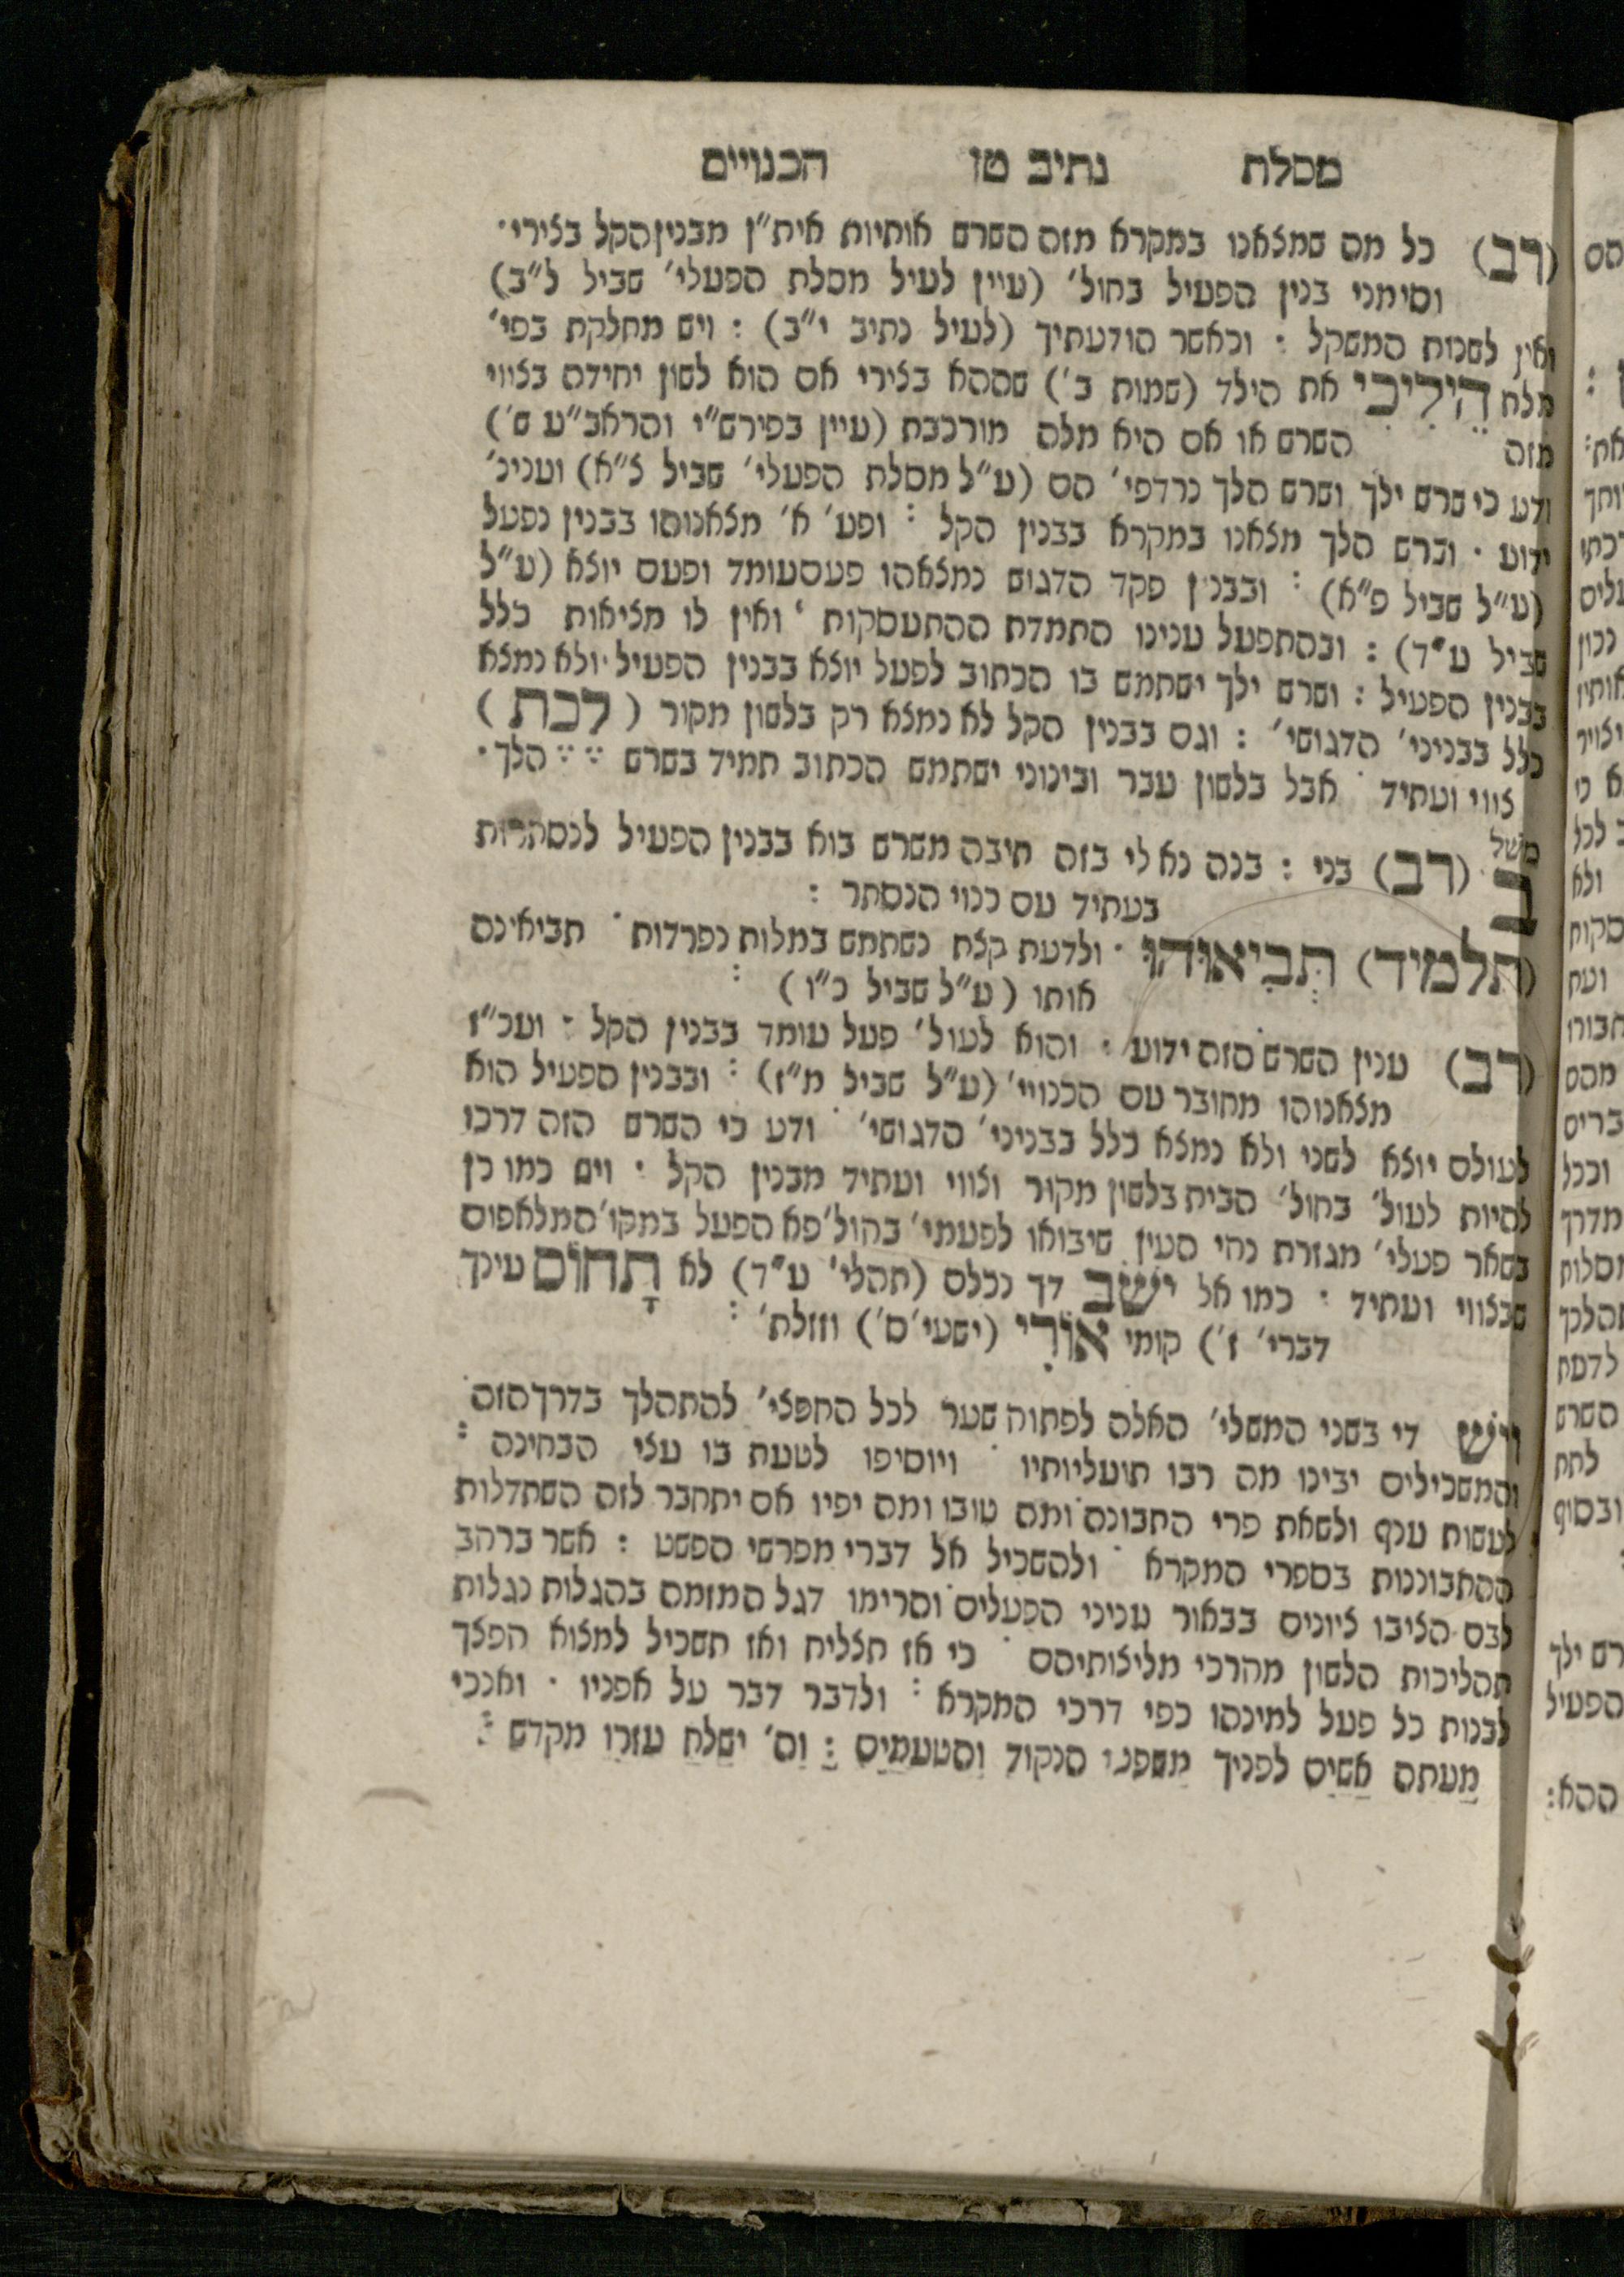 מסלת נתיב טו הכנויים
(רב) כל מה שמצאנו במקרא מזה השרש אותיות אית״ן מבנין הקל בצירי·
וסימני בנין הפעיל בחול׳ (עיין לעיל מסלת הפעלי׳ שביל ל״ב)
ואין לשנות המשקל : וכאשר הודעתיך (לעיל נתיב י״ב) : ויש מחלקת בפי׳
מלת הֵילִיכִי את הילד (שמות ב׳) שההא בצירי אם הוא לשון יחידה בצווי
מזה השרש או אם היא מלה מורכבת (עיין בפירש״י והראב״ע ש׳)
ודע כי שרש ילך ושרש הלך נרדפי׳ הם (ע״ל מסלת הפעלי׳ שביל נ״א) וענינ׳
ידוע · ושרש הלך מצאנו במקרא בבנין הקל : ופע׳ א׳ מצאנוהו בבנין נפעל
(ע״ל שביל פ״א) : ובבנין פקד הדגוש נמצאהו פעם עומד ופעם יוצא (ע״ל
שביל ע״ד) : ובהתפעל ענינו התמדת ההתעסקות · ואין לו מציאות כלל
בבנין הפעיל : ושרש ילך ישתמש בו הכתוב לפעל יוצא בבנין הפעיל · ולא נמצא
כלל בבניני׳ הדגושי׳ : וגם בבנין הקל לא נמצא רק בלשון מקור (לכת)
צווי ועתיד · אבל בלשון עבר ובינוני ישתמש הכתוב תמיד בשרש הלך·
משל
ב (רב) בני : בנה נא לי בזה תיבה משרש בוא בבנין הפעיל לנסתרות
בעתיד עם כנוי הנסתר :
(תלמיד) תְּבִיאוּהוּ · ולדעת קצת נשתמש במלות נפרדות · תביאינה
אותו (ע״ל שביל כ״ו) :
(רב) ענין השרש הזה ידוע · והוא לעול׳ פעל עומד בבנין הקל · ועכ״ז
מצאנוהו מחובר עם הכנויי׳ (ע״ל שביל מ״ז) : ובבנין הפעיל הוא
לעולם יוצא לשני ולא נמצא כלל בבניני׳ הדגושי׳ · ודע כי השרש הזה דרכו
להיות לעול׳ בחול׳ הבית בלשון מקור וצווי ועתיד מבנין הקל · ויש כמו כן
בשאר פעלי׳ מגזרת נחי העין שיבואו לפעמי׳ בחול׳ פא הפעל במקו׳ המלאפום
שבצווי ועתיד · כמו אל יָשֹׁב דך נכלם (תהלי׳ ע״ד) לא תָחוֹס עינך
דברי׳ ז׳) קומי אוֹרִי (ישעי׳ ס׳) וזולת׳ :
ויש די בשני המשלי׳ האלה לפתוח שער לכל החפצי׳ להתהלך בדרך הזה
והמשכילים יבינו מה רבו תועליותיו · ויוסיפו לטעת בו עצי הבחינה :
לעשות ענף ולשאת פרי התבונה ומה טובו ומה יפיו אם יתחבר לזה השתדלות
ההתבוננות בספרי המקרא · ולהשכיל אל דברי מפרשי הפשט : אשר ברהב
לבם הציבו ציונים בבאור עניני הפעלים והרימו דגל המזמה בהגלות נגלות
תהליכות הלשון מהרכי מליצותיהם · כי אז תצליח ואז תשכיל למצוא חפצך
לבנות כל פעל למינהו כפי דרכי המקרא : ולדבר דבר על אפניו · ואנכי
מעתה אשים לפניך משפטי הנקוד והטעמים : וה׳ ישלח עזרו מקדש :